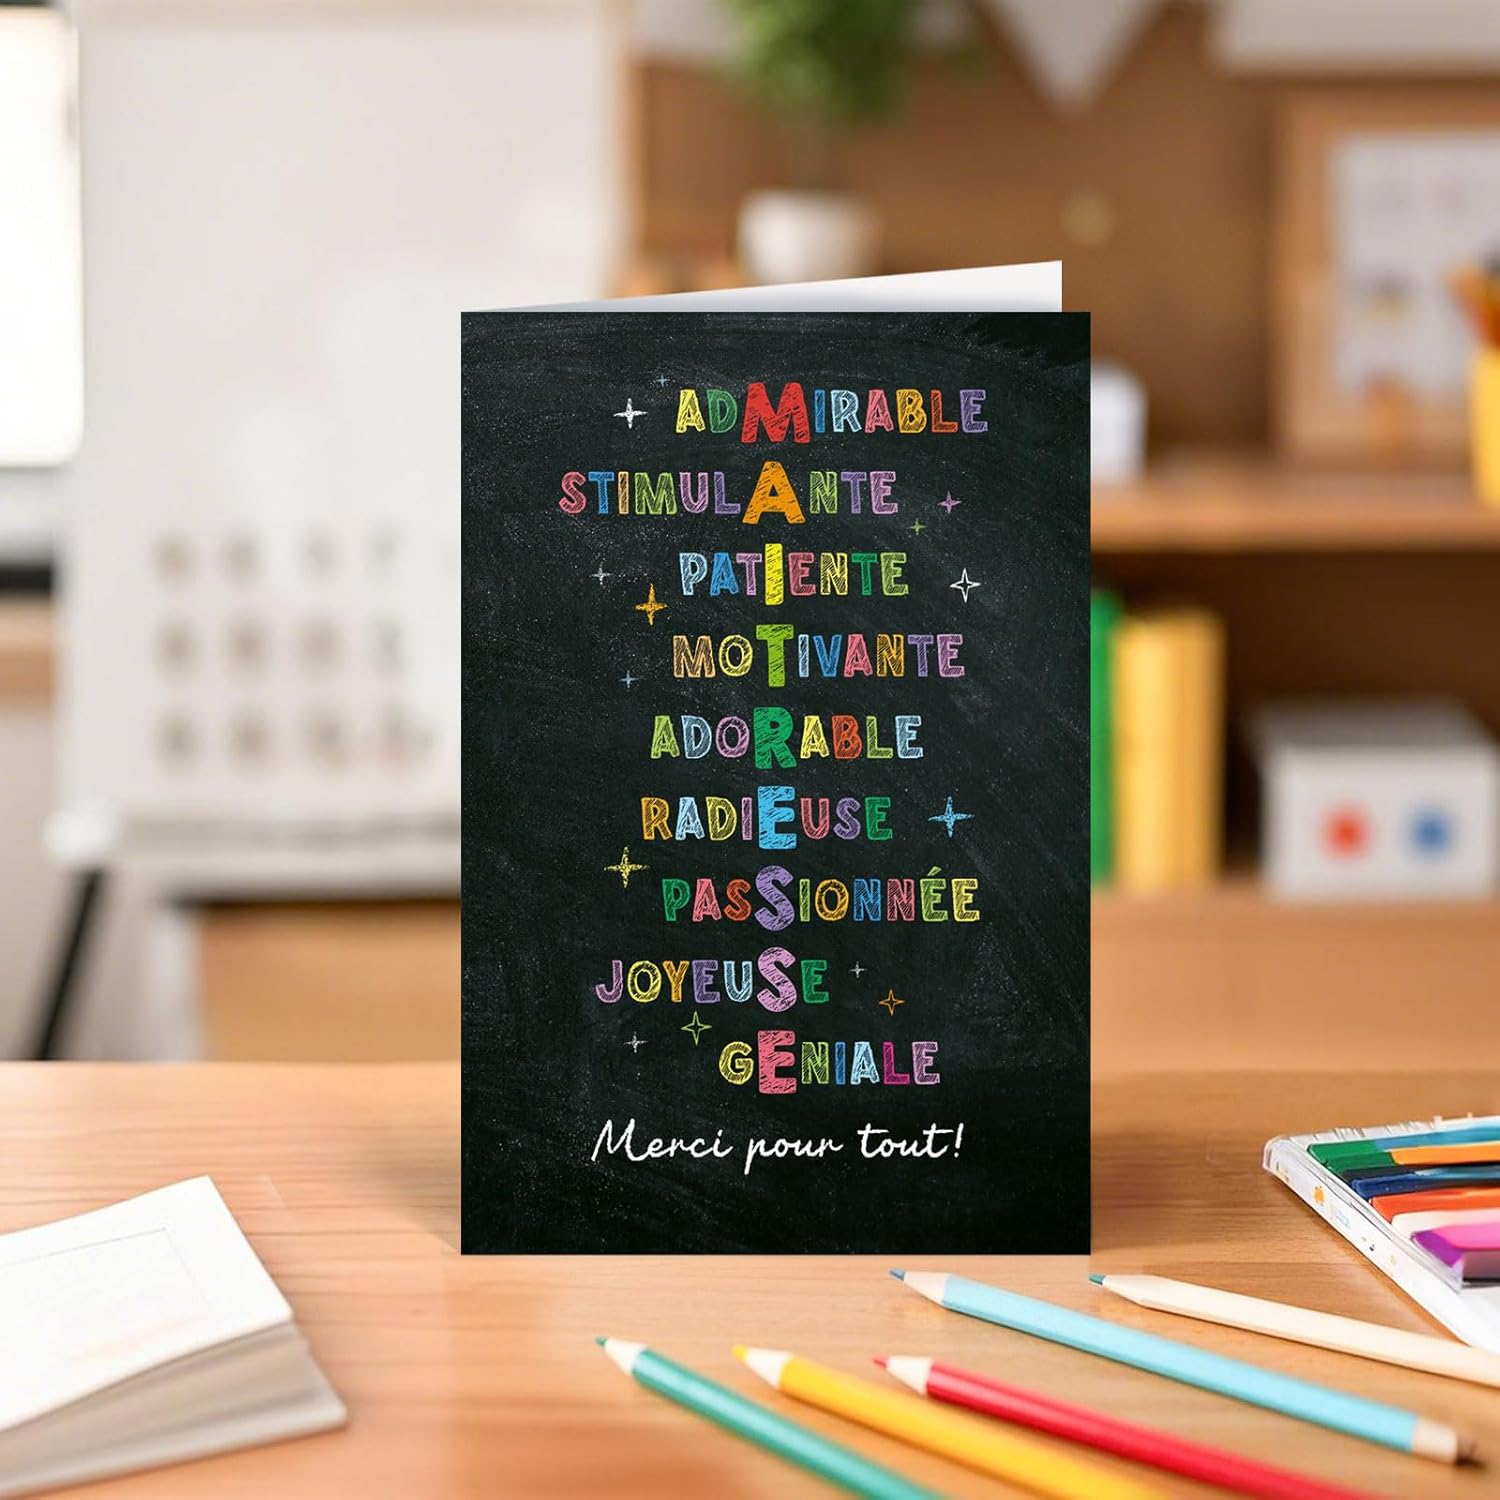 ADMIRABLE
STIMULANTE
PATIENTE
MOTIVANTE
ADORABLE
RADIEUSE
PASSIONNÉE
JOYEUSE
GENIALE
Merci pour tout!